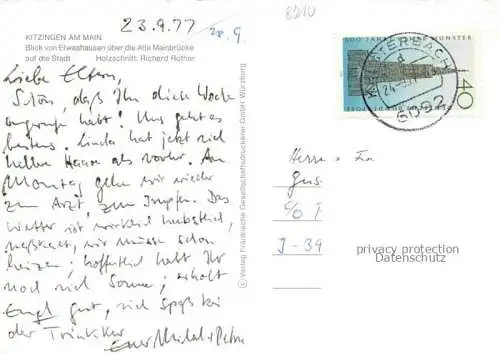 23.9.77
28.9.
8710
KITZINGEN AM MAIN
Blick von Etwashausen über die Alte Mainbrücke
auf die Stadt Holzschnitt: Richard Rother
Liebe Eltern,
Schön, daß Ihr diese Woche
angerufen habt! Uns geht es
bestens. Linda hat jetzt viel
hellere Haare als vorher. Am
Montag gehen wir wieder
zum Arzt, zum Impfen. Das
Wetter ist wirklich herbstlich,
naßkalt, wir müssen schon
heizen; hoffentlich habt Ihr
noch viel Sonne; erholt
Euch gut, viel Spaß bei
der Trinkkur
Eure Michael + Petra
© Verlag Fränkische Gesellschaftsdruckerei GmbH Würzburg
JAHRE DOM ULMER MÜNSTER
40
KELSTERBACH
24.
6092
Herrn + Frau
Gus
c/o
I-39
privacy protection
Datenschutz